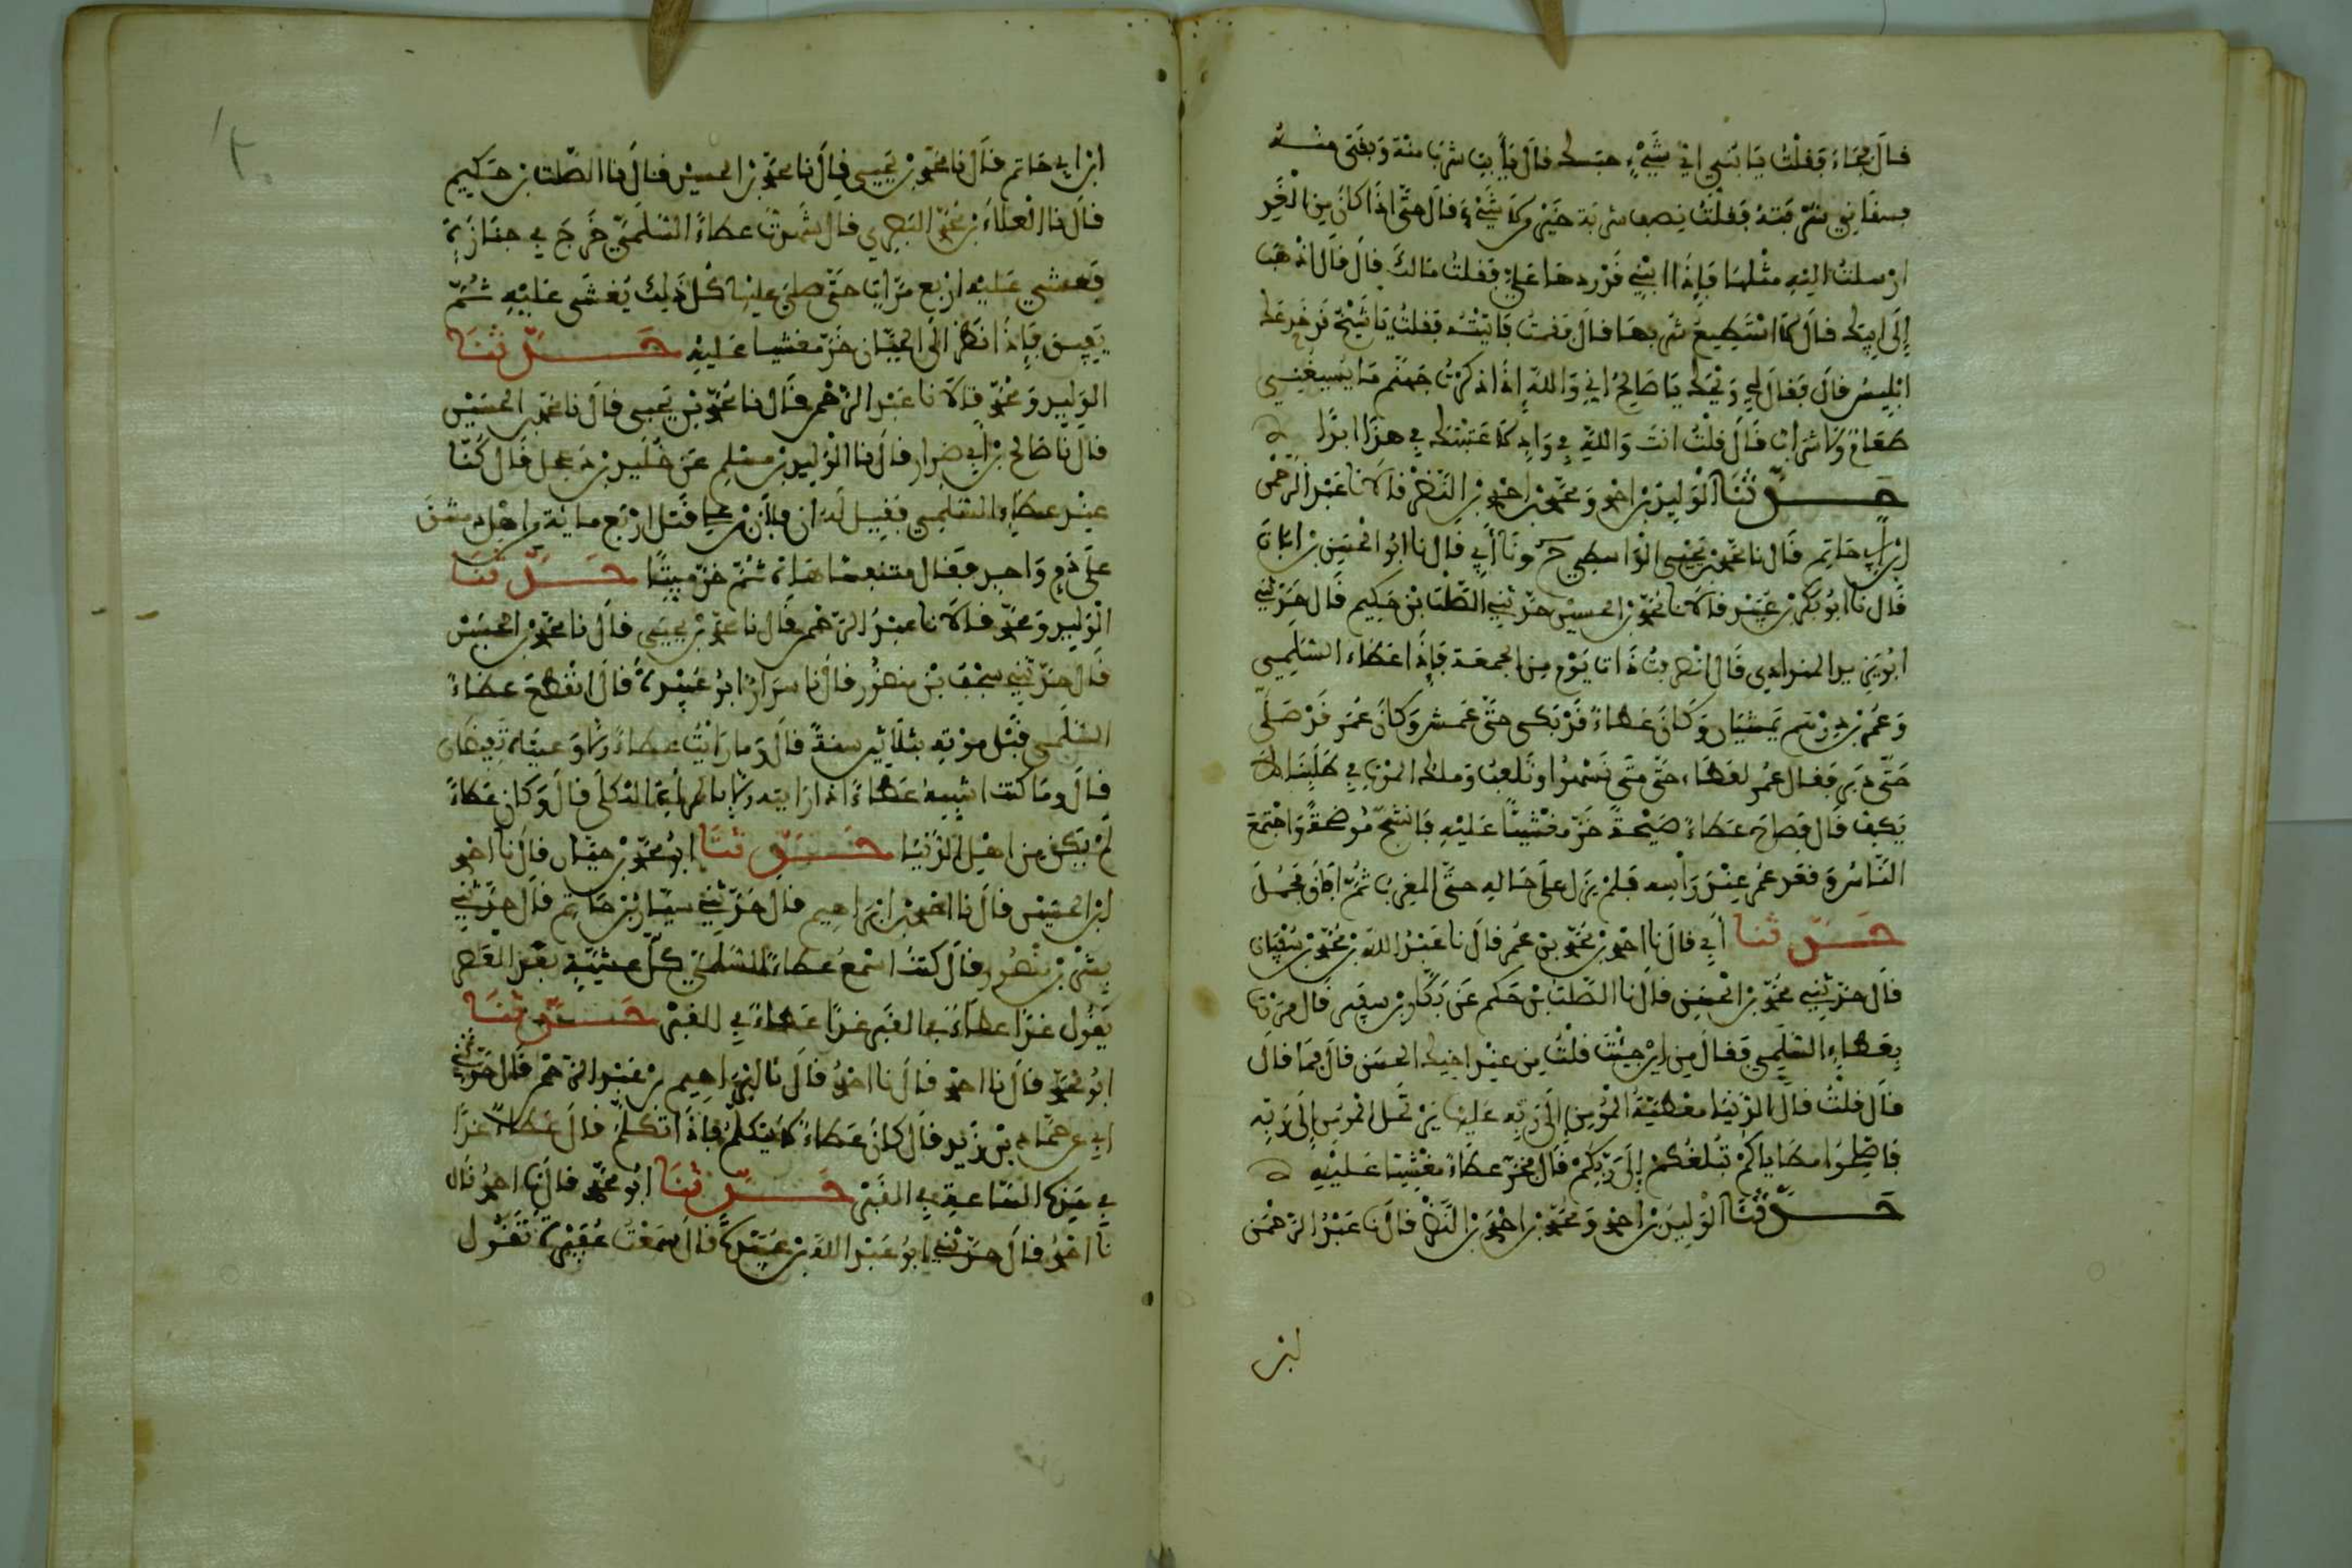 قال فجاء فقلت يا بني اي شيء حبسك قال يا أبت شرب منه وبقى منه
فسقاني شربته فقلت نصف شربة خير من لا شيء قال حتى اذا كان من الغد
ارسلت اليه مثلها فإذا ابني قد ردها علي فقلت مالك قال قال اذهب
إلى ابيك فقل لا استطيع شربها قال فقمت فاتيته فقلت يا شيخ قد خدعك
ابليس قال فقال لي ويحك يا صالح اني والله إذا ذكرت جهنم ما يسيغني
طعام ولا شراب قال قلت انت والله في واد لا عتبتك في هذا ابدا
حدثنا الوليد بن احمد ومحمد بن احمد بن النضر قالا نا عبد الرحمن
ابن أبي حاتم قال نا محمد بن يحيى الواسطي ح ونا أبي قال نا ابو الحسن بن ابان
قال نا ابو بكر بن عبيد قالا نا محمد بن الحسين حدثني الصلت بن حكيم قال حدثني
ابو يزيد الهدادي قال انصرفت ذات يوم من الجمعة فإذا عطاء السلمي
وعمر بن درهم يمشيان وكان عطاء قد بكى حتى عمش وكان عمر قد صلى
حتى دبر فقال عمر لعطاء حتى متى نسهو ونلعب وملك الموت في طلبنا لا
يكف قال فصاح عطاء صيحة خر مغشيا عليه فانشج موضحة واجتمع
الناس وقعد عمر عند رأسه فلم يزل على حاله حتى المغرب ثم افاق فحمل
حدثنا أبي قال نا احمد بن محمد بن عمر قال نا عبد الله بن محمد بن سفيان
قال حدثني محمد بن الحسين قال نا الصلت بن حكيم عن بكار بن سقير قال مررنا
بعطاء السلمي فقال من اين جئت قلت من عند اخيك الحسن قال فما قال
قال قلت قال الدنيا مطية المؤمن إلى ربه عليها يرتحل المؤمن إلى ربه
فاصلحوا مطاياكم تبلغكم إلى ربكم قال فخر عطاء مغشيا عليه
حدثنا الوليد بن احمد ومحمد بن احمد بن النضر قالا نا عبد الرحمن
ابن
ابن ابي حاتم قال نا محمد بن يحيى قال نا محمد بن الحسين قال نا الصلت بن حكيم
قال نا العلاء بن محمد البصري قال شهدت عطاء السلمي خرج في جنازة
فغشي عليه اربع مرات حتى صلى عليها كل ذلك يغشى عليه ثم
يفيق فإذا نظر الى الجبان خر مغشيا عليه حدثنا
الوليد ومحمد قالا نا عبد الرحمن قال نا محمد بن يحيى قال نا محمد بن الحسين
قال نا صالح بن أبي ضرار قال نا الوليد بن مسلم عن خليد بن دعلج قال كنا
عند عطاء السلمي فقيل له ان فلان بن علي قتل اربع ماية من اهل دمشق
على دم واحد فقال متنفسا هاه ثم خر ميتا حدثنا
الوليد ومحمد قالا نا عبد الرحمن قال نا محمد بن يحيى قال نا محمد بن الحسين
قال حدثني سجف بن منظور قال نا سرار ابو عبيدة قال انقطع عطاء
السلمي قبل موته بثلاثين سنة قال وما رايت عطاء الا وعيناه تفيضان
قال وما كنت اشبه عطاء اذا رايته الا بالمرأة الثكلى قال وكان عطاء
لم يكن من اهل الدنيا حدثنا ابو محمد بن حيان قال نا احمد
ابن الحسين قال نا احمد بن ابراهيم قال حدثني سيار بن حاتم قال حدثني
بشر بن منصور قال كنت اسمع عطاء السلمي كل عشية بعد العصر
يقول غدا عطاء في القبر غدا عطاء في القبر حدثنا
ابو محمد قال نا احمد قال نا احمد قال نا ابراهيم بن عبد الرحمن قال حدثني
ابي عن حماد بن زيد قال كان عطاء لا يتكلم فاذا تكلم قال عطاء غدا
في هذه الساعة في القبر حدثنا ابو محمد قال نا احمد قال
نا احمد قال حدثني ابو عبد الله بن عبيدة قال سمعت عفيرة تقول